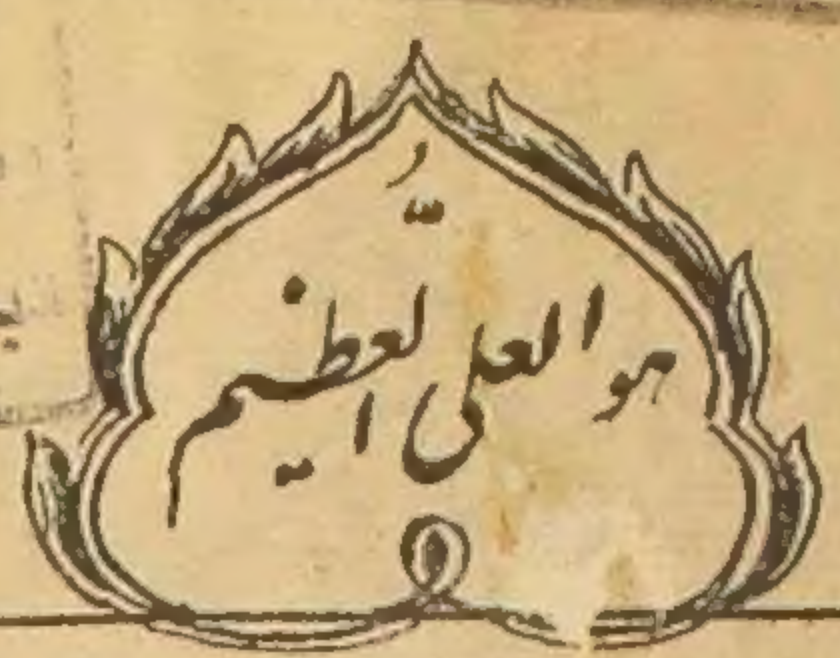 هو العلی العظیم